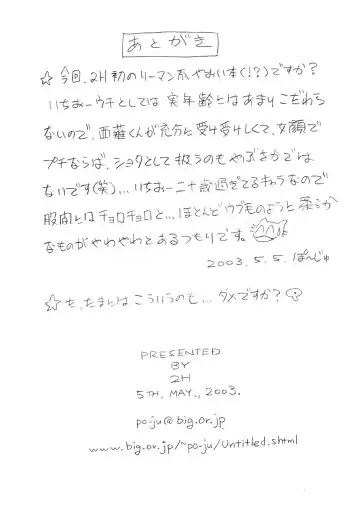 あとがき
☆今回、2H初のリーマン系やおい本(!?)ですか?
いちおーウチとしては実年齢とはあまりこだわら
ないので、西薙くんが充分に受け受けしくて、女顔で
プチならば、ショタとして扱うのもやぶさかでは
ないです(笑)…いちおー二十歳過ぎてるキャラなので
股間とはチョロチョロと…ほとんどウブ毛のような柔らか
なものがやわやわとあるつもりです。
2003.5.5. ぱーじゅ
☆た、たまにはこういうのも…ダメですか?
PRESENTED
BY
2H
5TH. MAY., 2003.
po-ju@big.or.jp
www.big.or.jp/~po-ju/Untitled.shtml